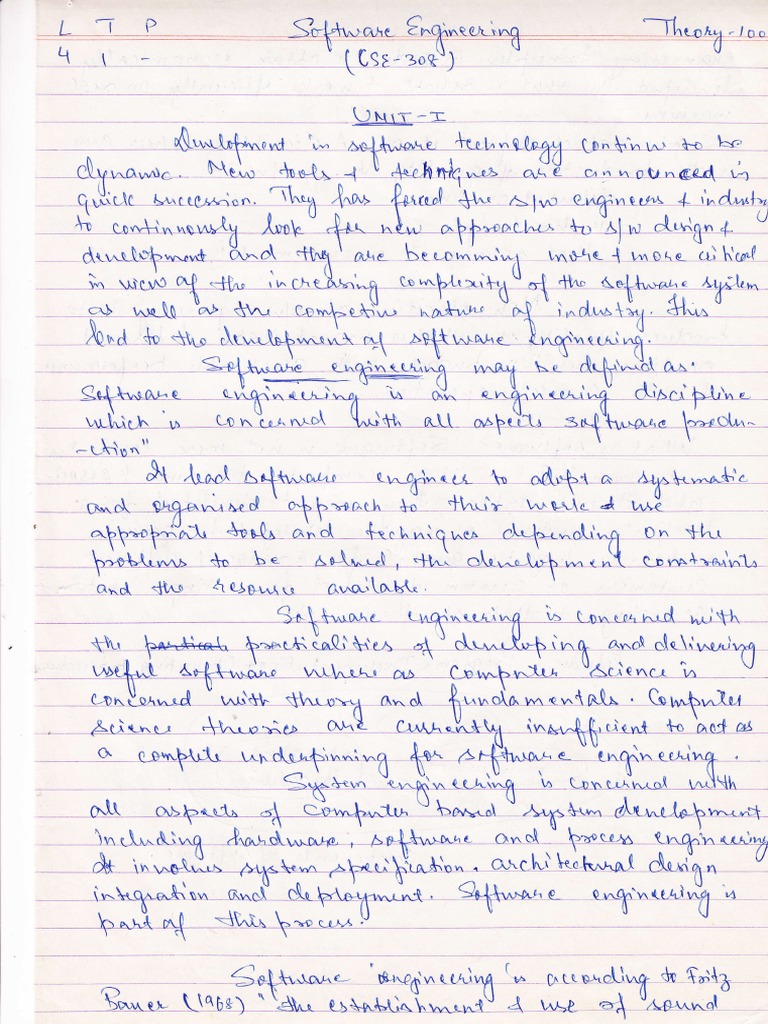 L T P Software Engineering Theory-100
4 1 - (CSE-308)
UNIT-I
Development in software technology continue to be
dynamic. New tools & techniques are announced in
quick succession. They has forced the s/w engineers & industry
to continuously look for new approaches to s/w design &
development and they are becomming more & more critical
in view of the increasing complexity of the software system
as well as the competive nature of industry. This
lead to the development of software engineering.
Software engineering may be defined as.
Software engineering is an engineering discipline
which is concerned with all aspects software produ-
-ction"
It lead software engineer to adopt a systematic
and organised approach to their work & use
appropriate tools and techniques depending on the
problems to be solved, the development constraints
and the resource available.
Software engineering is concerned with
the partical practicalities of developing and delivering
useful software where as computer science is
concerned with theory and fundamentals. Computer
science theories are currently insufficient to act as
a complete underpinning for software engineering.
System engineering is concerned with
all aspects of computer based system development
including hardware, software and process engineering
It involves system specification. architectural design
integration and deployment. Software engineering is
part of this process.
Software engineering is according to Fritz
Bauer (1968) "the establishment & use of sound